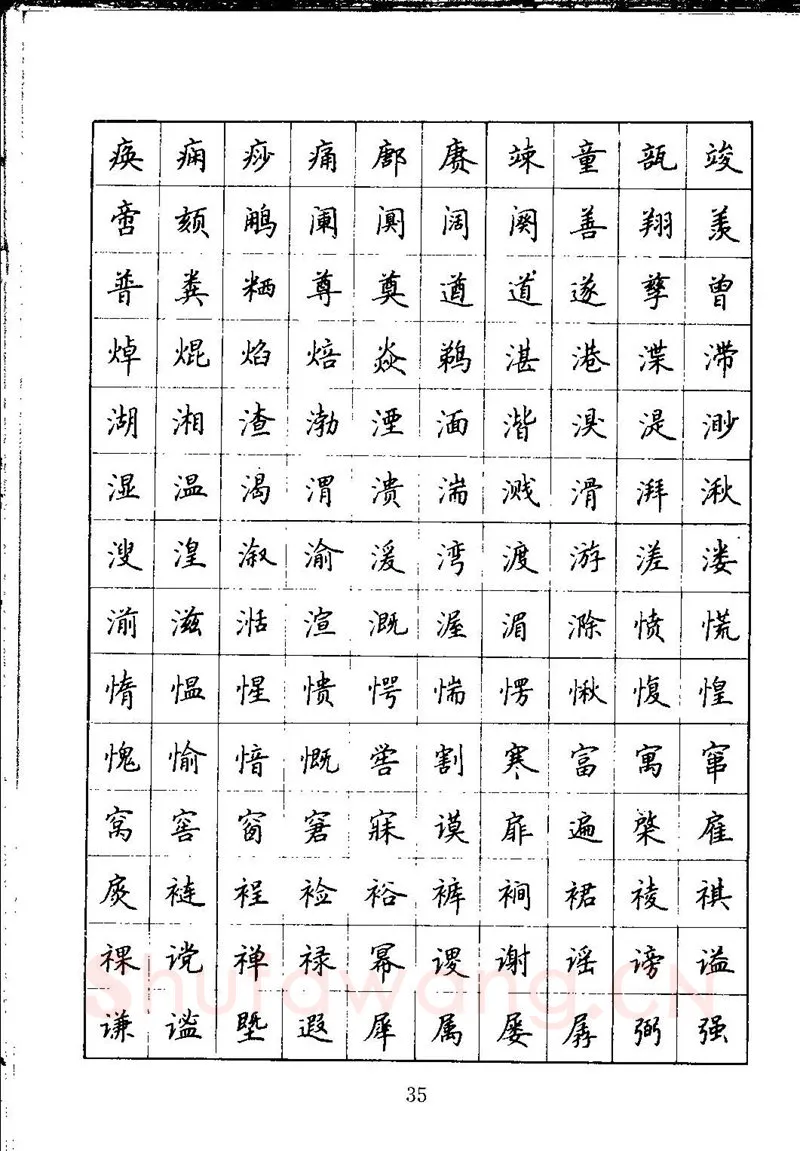 痪痫痧痛鄌赓竦童瓿竣
啻颏鹇阑阒阔阕善翔羡
普粪粞尊奠遒道遂孳曾
焯焜焰焙焱鹈湛港渫滞
湖湘渣渤湮湎湝湨湜渺
湿温渴渭溃湍溅滑湃湫
溲湟溆渝湲湾渡游溠溇
湔滋湉渲溉渥湄滁愤慌
惰愠惺愦愕惴愣愀愎惶
愧愉愔慨喾割寒富寓窜
窝窖窗窘寐谟扉遍棨雇
扊裢裎裣裕裤裥裙祾祺
祼谠禅禄幂谡谢谣谤谥
谦谧塈遐犀属屡孱弼强
Shufawang.CN
35